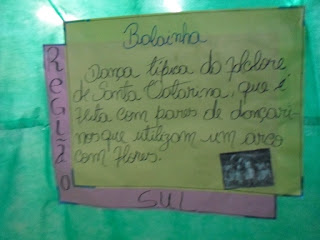 Balainha
Dança típica do folclore
de Santa Catarina, que é
feita com pares de dançari-
nos que utilizam um arco
com flores.
Região
SUL